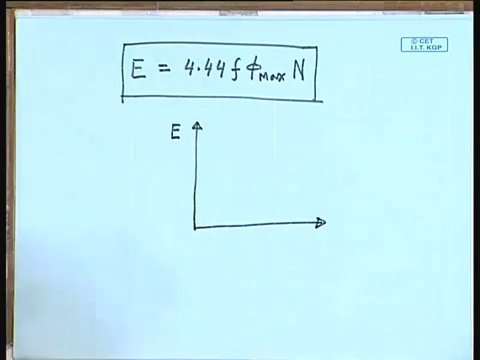 © CET
I.I.T. KGP
E = 4.44 f ϕMax N
E